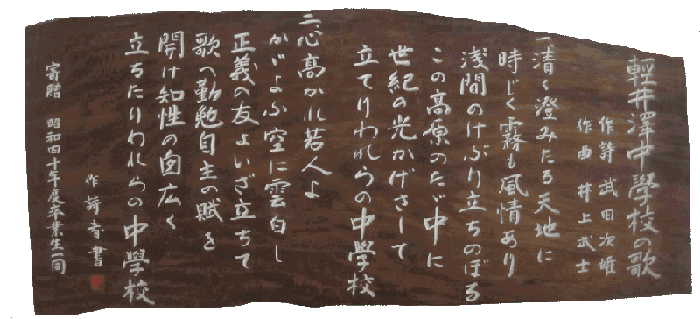 輕井澤中學校の歌
作詩 武田次雄
作曲 井上武士
一清く澄みたる天地に
時じく霧も風情あり
浅間のけぶり立ちのぼる
この高原のたゞ中に
世紀の光かげさして
立てりわれらの中學校
二心高かれ若人よ
かゞよふ空に雲白し
正義の友よいざ立ちて
歌へ勤勉自主の賦を
開け知性の窗広く
立ちたりわれらの中學校
作詩者書
寄贈 昭和四十年度卒業生一同